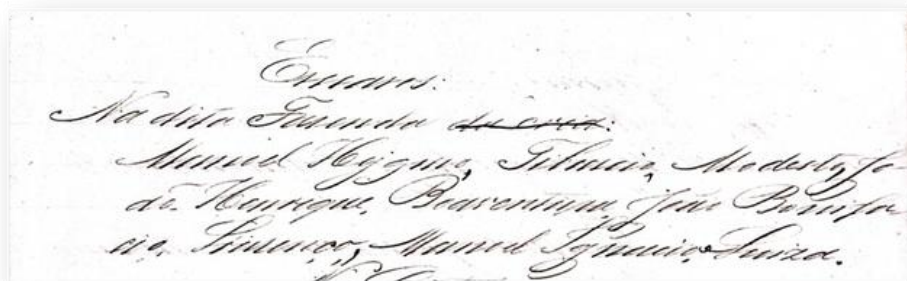 Escravos:
Na dita Fazenda da cria:
Manoel Hygino, Tiburcio, Modesto, Jo-
ão Henrique, Boaventura, João Bonifa-
cio, Lourenço, Manoel Ignacio e Luiza.